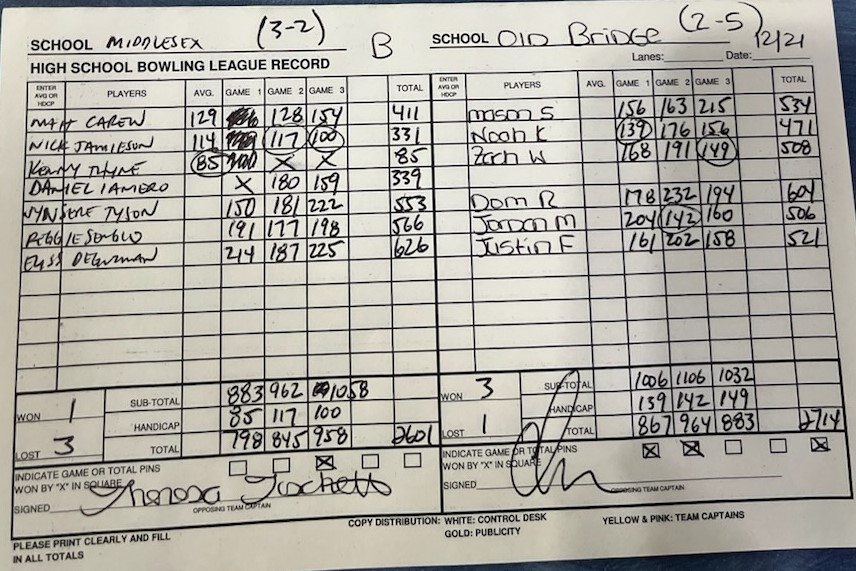 SCHOOL MIDDLESEX (3-2) B SCHOOL Old Bridge (2-5)
HIGH SCHOOL BOWLING LEAGUE RECORD Lanes: Date: 12/21
ENTER AVG OR HDCP PLAYERS AVG. GAME 1 GAME 2 GAME 3 TOTAL ENTER AVG OR HDCP PLAYERS AVG. GAME 1 GAME 2 GAME 3 TOTAL
MATT CAREW 129 128 154 411 mason S 156 163 215 534
NICK JAMIESON 114 117 100 331 Noah K 139 176 156 471
KENNY THYNE 85 X X 85 Zach W 168 191 149 508
DANIEL X 180 159 339
TYSON 150 181 222 553 Dom R 178 232 194 604
191 177 198 566 Jordan M 204 142 160 506
DEGUZMAN 214 187 225 626 Justin F 161 202 158 521
WON 1 SUB-TOTAL 883 962 1058 WON 3 SUB-TOTAL 1006 1106 1032
HANDICAP 85 117 100 HANDICAP 139 142 149
LOST 3 TOTAL 798 845 958 2601 LOST 1 TOTAL 867 964 883 2714
INDICATE GAME OR TOTAL PINS INDICATE GAME OR TOTAL PINS
WON BY "X" IN SQUARE X WON BY "X" IN SQUARE X X X
SIGNED Theresa OPPOSING TEAM CAPTAIN SIGNED OPPOSING TEAM CAPTAIN
PLEASE PRINT CLEARLY AND FILL COPY DISTRIBUTION: WHITE: CONTROL DESK YELLOW & PINK: TEAM CAPTAINS
IN ALL TOTALS GOLD: PUBLICITY